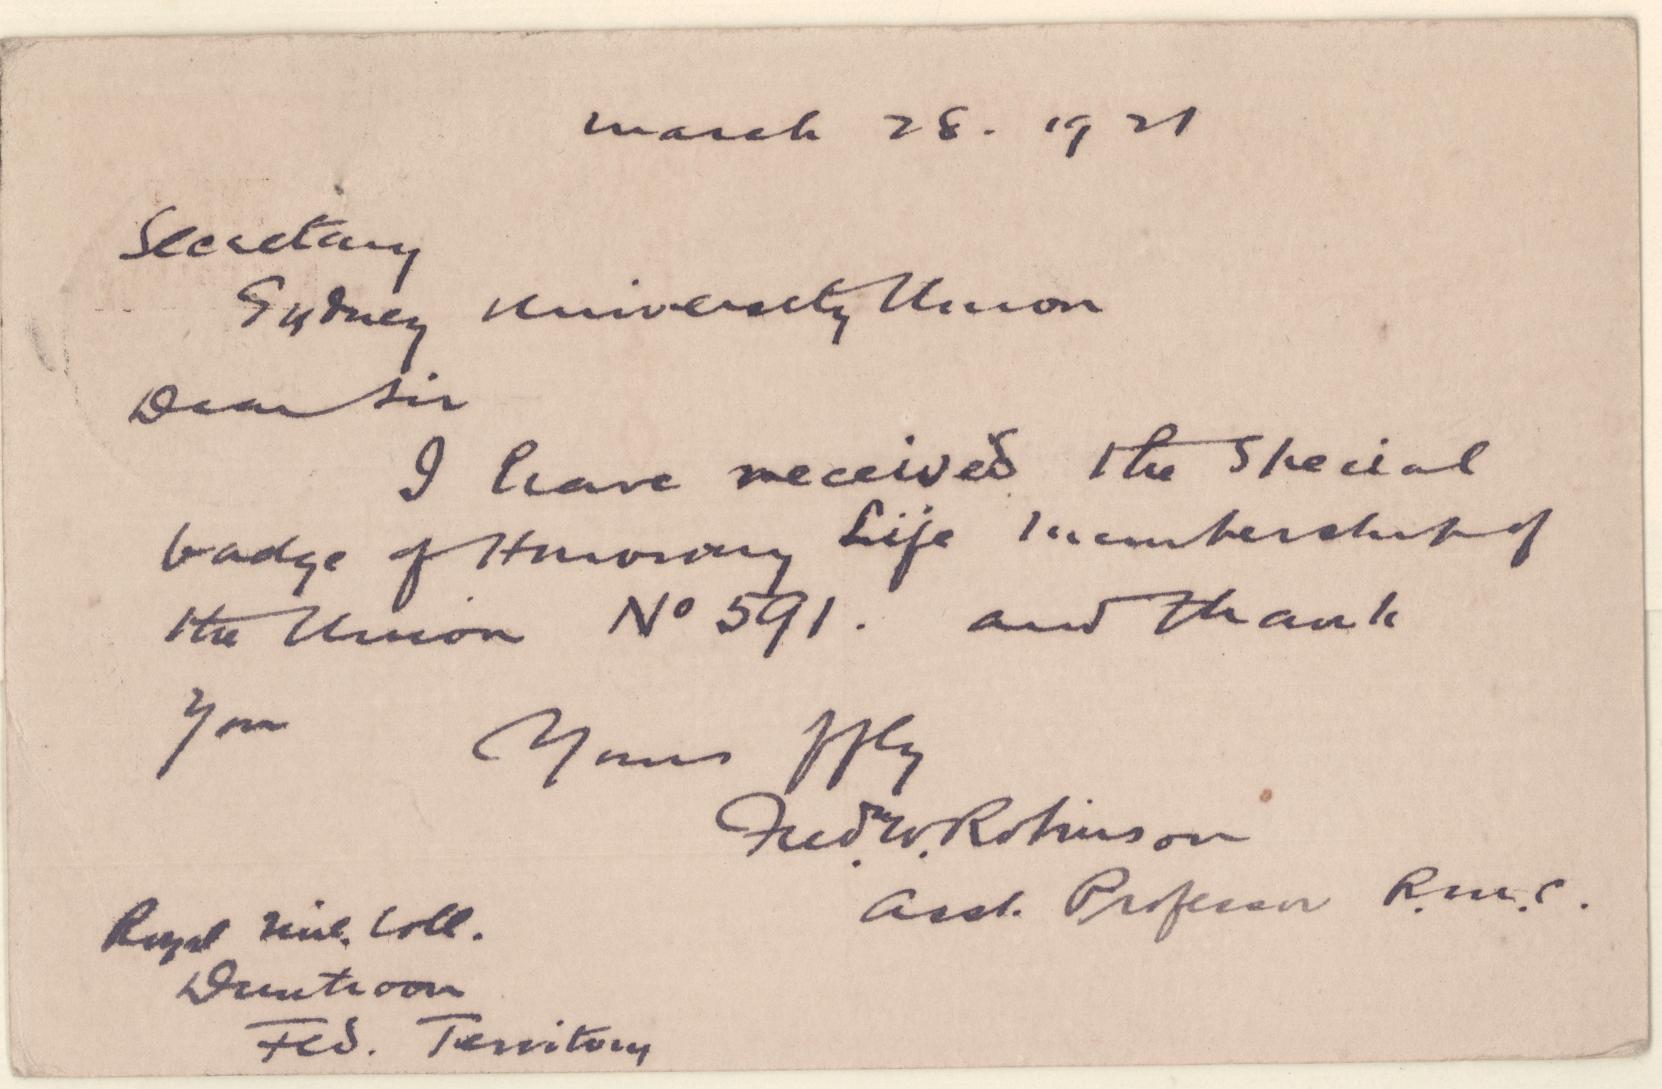 March 28. 1921
Secretary
Sydney University Union
Dear Sir
I have received the Special
badge of Honorary Life Membership of
the Union No 591. and thank
you Yours ffly
Fredk. W. Robinson
Asst. Professor R.M.C.
Royal Mil. Coll.
Duntroon
Fed. Territory